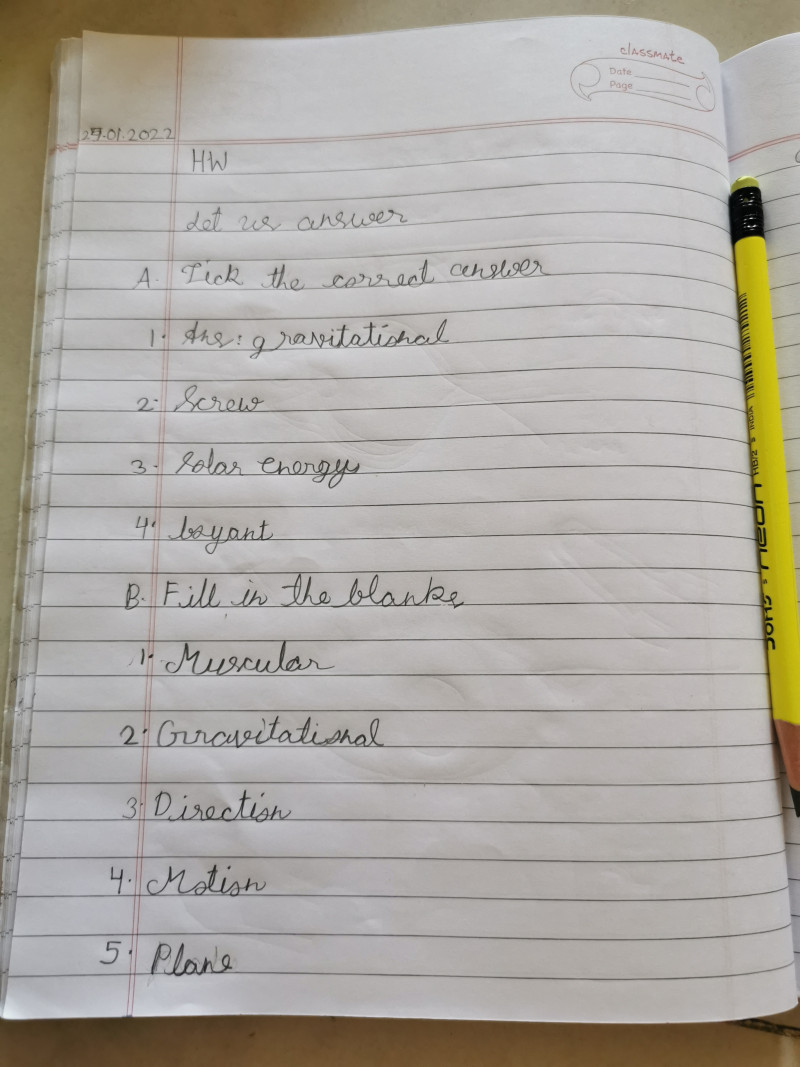 classmate
Date
Page
HW
Let us answer
A. Tick the correct answer
1. Ans: gravitational
2. Screw
3. Solar energy
4. boyant
B. Fill in the blanks
1. Muscular
2. Gravitational
3. Direction
4. Motion
5. Plane
neon
HB/2
INDIA